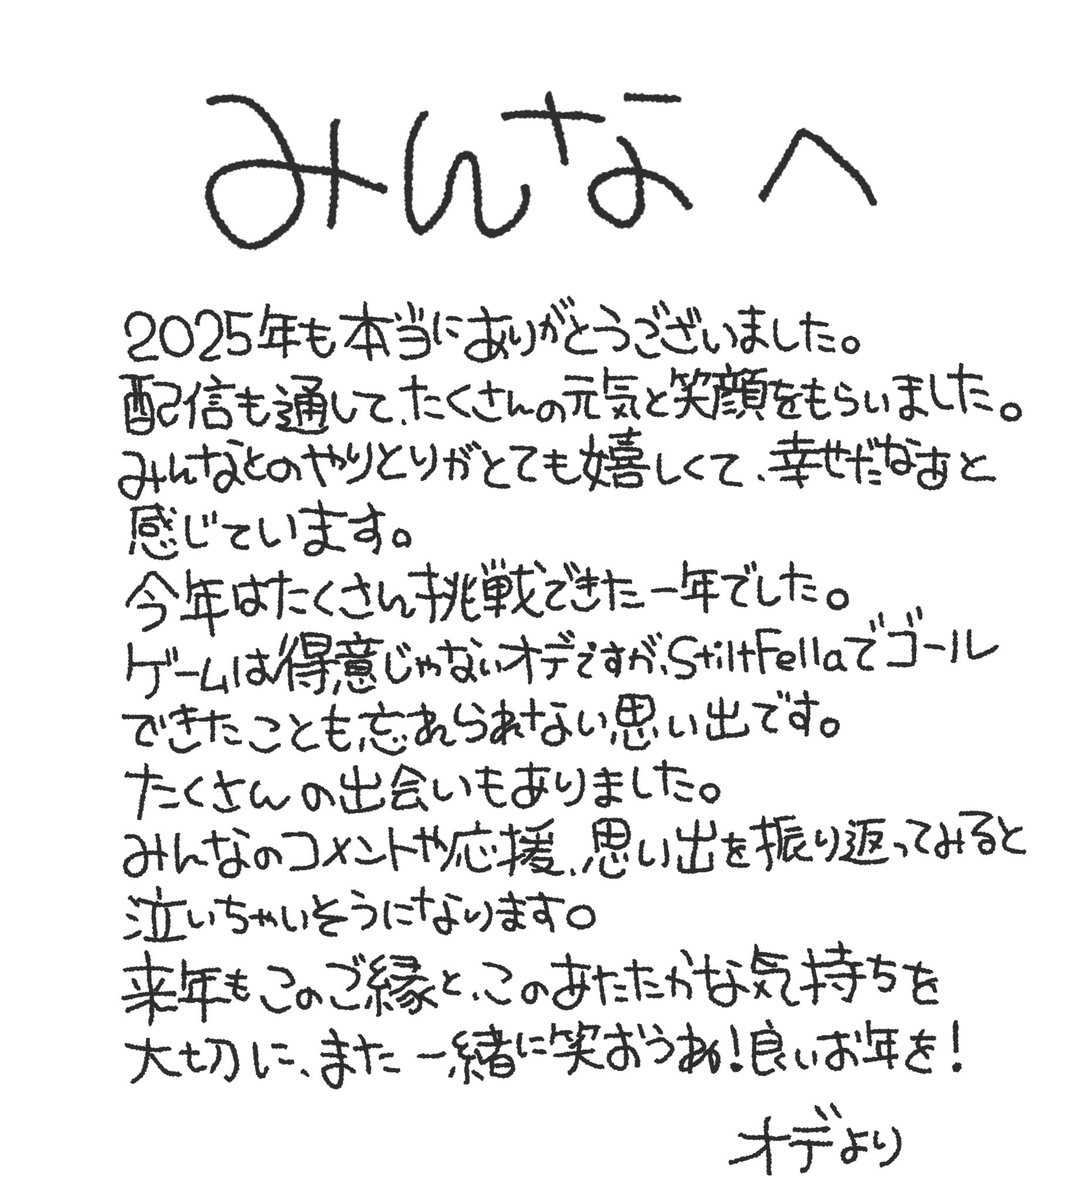 みんなへ
2025年も本当にありがとうございました。
配信も通して、たくさんの元気と笑顔をもらいました。
みんなとのやりとりがとても嬉しくて、幸せだなぁと
感じています。
今年はたくさん挑戦できた一年でした。
ゲームは得意じゃないオデですが、StiltFellaでゴール
できたことも忘れられない思い出です。
たくさんの出会いもありました。
みんなのコメントや応援、思い出を振り返ってみると
泣いちゃいそうになります。
来年もこのご縁と、このあたたかな気持ちを
大切に、また一緒に笑おうね！良いお年を！
オデより